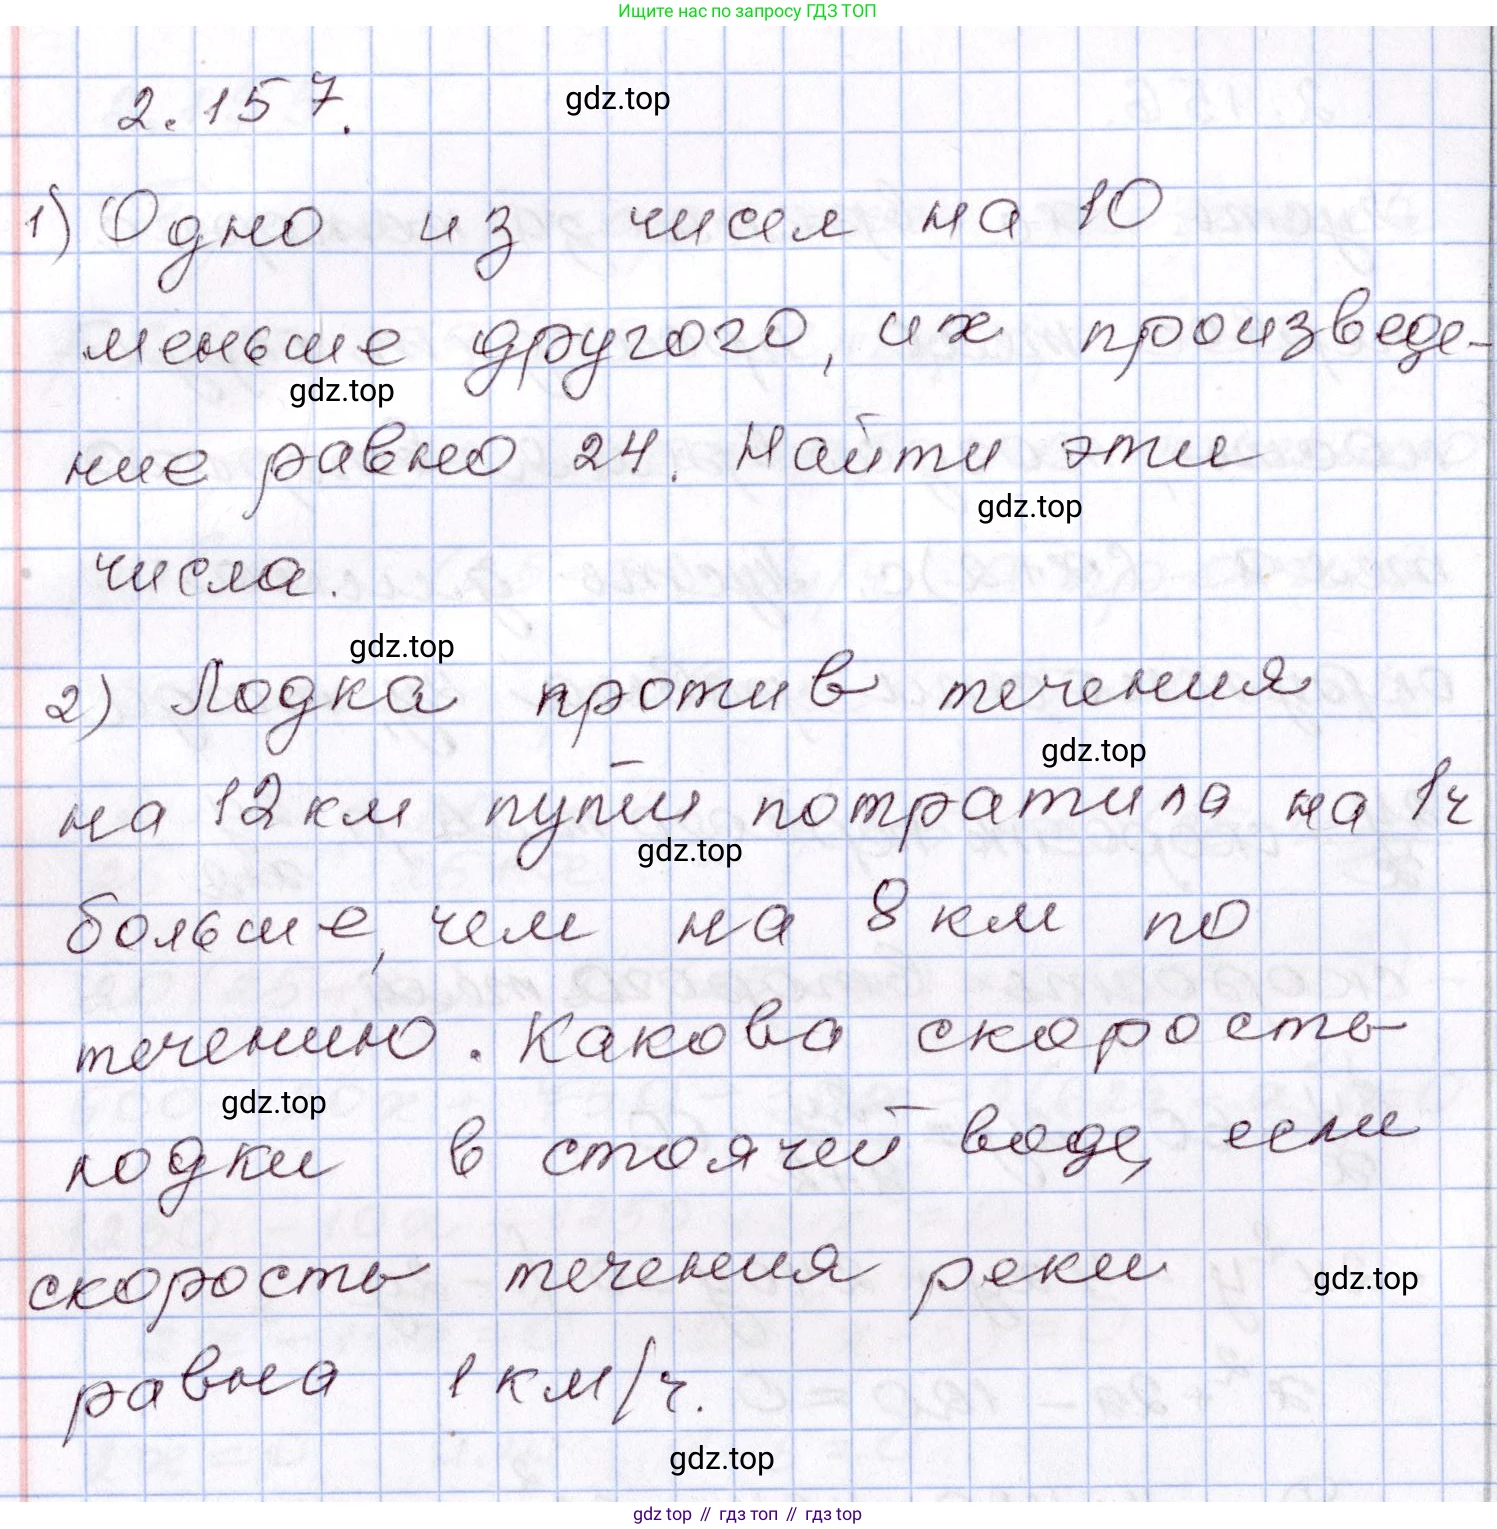 Ищите нас по запросу ГДЗ ТОП
2.157.
gdz.top
1) Одно из чисел на 10
меньше другого, их произведе-
gdz.top
ние равно 24. Найти эти
gdz.top
числа.
gdz.top
2) Лодка против течения
gdz.top
на 12 км пути потратила на 1 ч
gdz.top
больше, чем на 8 км по
течению. Какова скорость
gdz.top
лодки в стоячей воде, если
скорость течения реки
gdz.top
равна 1 км/ч.
gdz.top
gdz top // гдз топ // гдз top